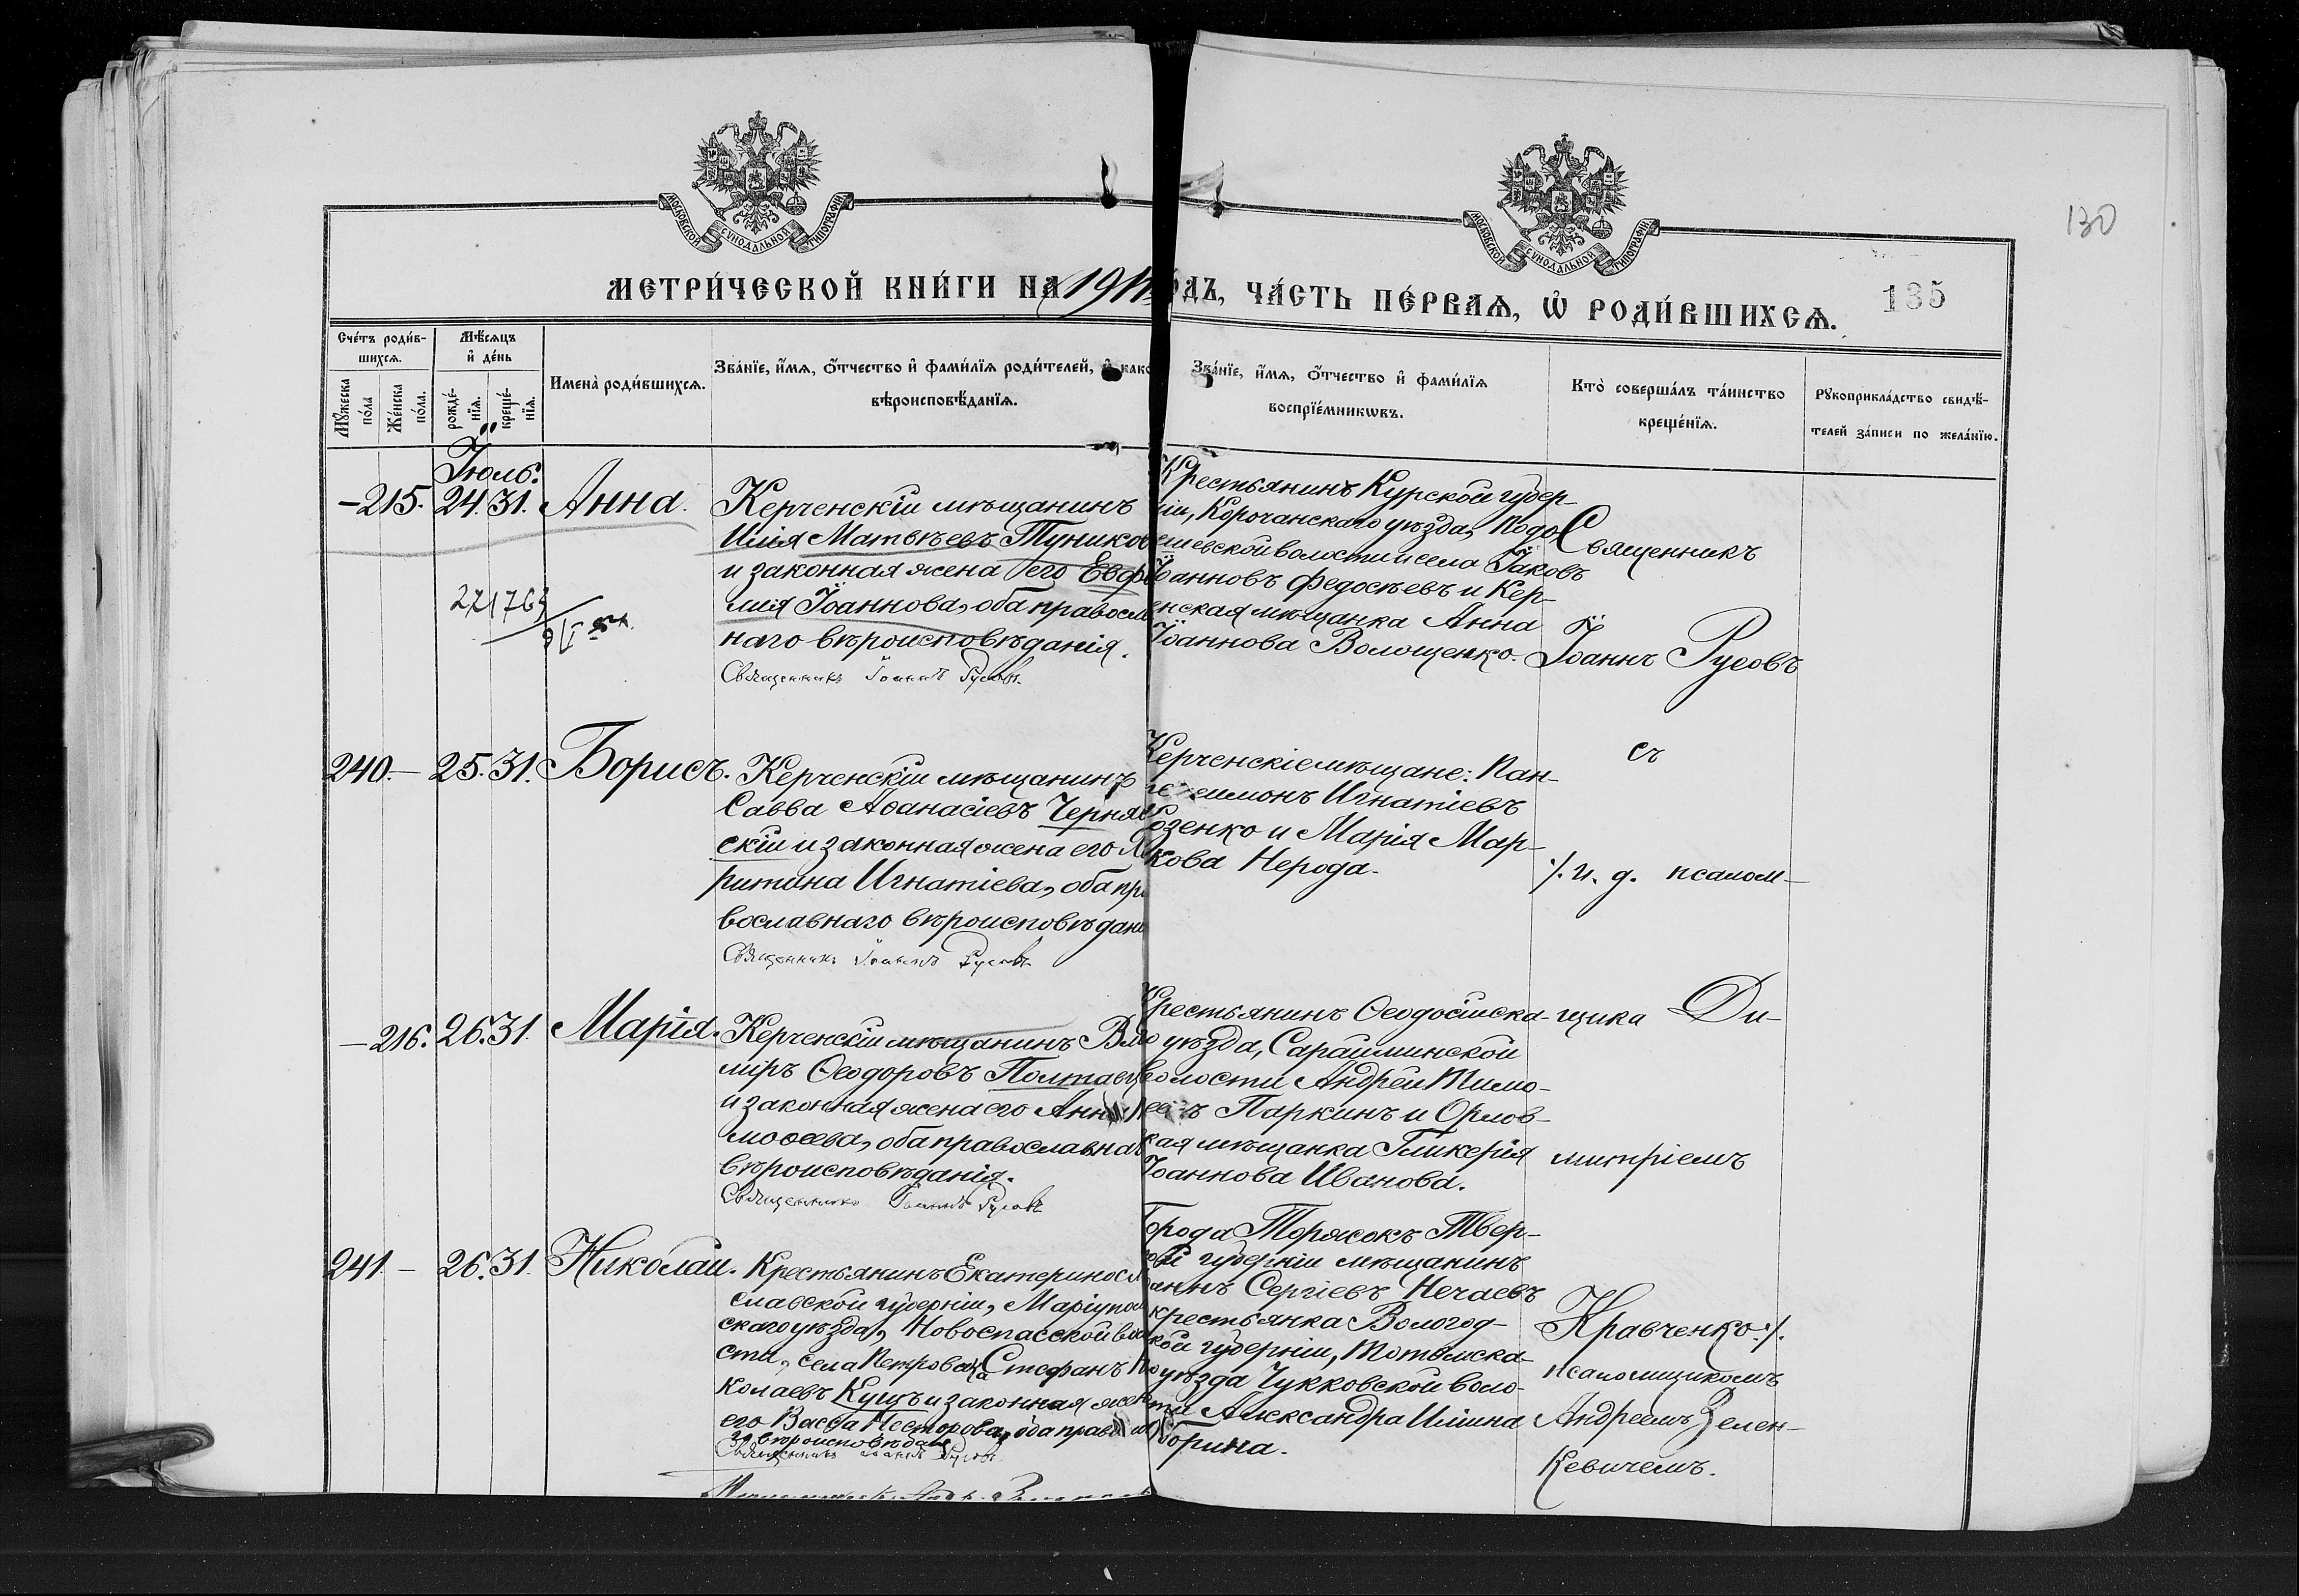 МОСКОВСКОЙ СѴНОДАЛЬНОЙ ТИПОГРАФІИ
МОСКОВСКОЙ СѴНОДАЛЬНОЙ ТИПОГРАФІИ
130
МЕТРИ́ЧЕСКОЙ КНИ́ГИ НА 191
ОДЪ, ЧА́СТЬ ПЕ́РВАѦ, Ѡ РОДИ́ВШИХСѦ.
135
Сче́тъ роди́в-
шихсѧ.
Мꙋ́жеска
по́ла
Же́нска
по́ла.
Мѣ́сѧцъ
и҆ де́нь
рожде́-
нїѧ.
креще́-
нїѧ.
Имена̀ роди́вшихсѧ.
Зва́нїе, и҆́мѧ, ѻ҆́тчество и҆ фами́лїѧ роди́телей, и҆ како
вѣроисповѣ́данїѧ.
Зва́нїе, и҆́мѧ, ѻ҆́тчество и҆ фами́лїѧ
воспрїе́мникѡвъ.
Кто̀ соверша́лъ та́инство
креще́нїѧ.
Рꙋкоприкла́дство свидѣ́-
телей за́писи по жела́нїю.
Іюль.
-215. 24. 31. Анна.
Керченскій мѣщанинъ
Илія Матвѣевъ Тунико
и законная жена его Евф
мія Іоаннова, оба правосл
наго вѣроисповѣданія.
Священникъ Іоаннъ Русовъ.
Крестьянинъ Курской губер-
ніи, Корочанскаго уѣзда, Подо
ешевской волости и села Іаковъ
Іоанновъ Федосѣевъ и Кер-
енская мѣщанка Анна
Іоаннова Волощенко.
Священникъ
Іоаннъ Русовъ
240. - 25. 31. Борисъ.
Керченскій мѣщанинъ
Савва Аѳанасіевъ Черняв
скій и законная жена его Ха
ритина Игнатіева, оба пра
вославнаго вѣроисповѣдані
Священникъ Іоаннъ Русовъ
Керченскіе мѣщане: Пан-
телеимонъ Игнатіевъ
озенко и Марія Мар-
кова Нерода.
съ
и. д. псалом-
-216. 26. 31. Марія.
Керченскій мѣщанинъ Вла
міръ Ѳеодоровъ Полтаве
и законная жена его Анна
моѳеева, оба православна
вѣроисповѣданія.
Священникъ Іоаннъ Русовъ
Крестьянинъ Ѳеодосійска-
го уѣзда, Сарайминской
волости Андрей Тимо-
ѳеевъ Паркинъ и Орлов-
кая мѣщанка Гликерія
Іоаннова Иванова.
щика Ди-
митріемъ
241. - 26. 31. Николай.
Крестьянинъ Екатериносл
славской губерніи, Маріупол
скаго уѣзда, Новоспасской вол
сти, села Петровска Стефанъ Ни
колаевъ Кущъ и законная жен
его Васса Несторова, оба правосл
го вѣроисповѣдан
Священникъ Іоаннъ Русовъ
Города Торжокъ Твер-
ой губерніи мѣщанинъ
аннъ Сергіевъ Нечаевъ
крестьянка Вологод-
кой губерніи, Тотемска-
го уѣзда Чукковской воло-
сти Александра Ильина
орина.
Кравченко
псаломщикомъ
Андреемъ Зелен-
кевичемъ.